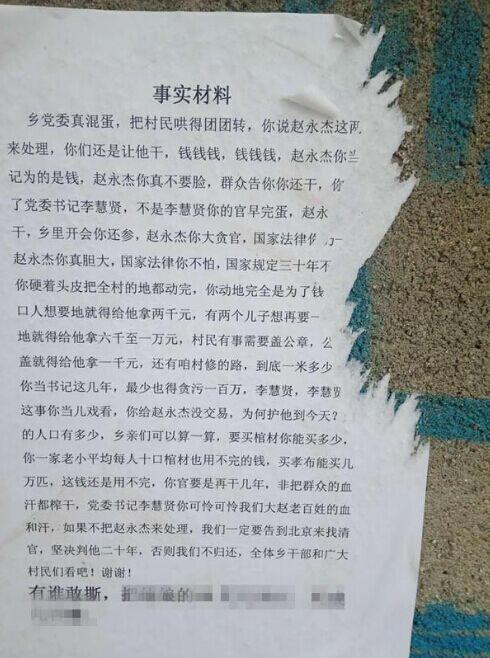 事实材料
乡党委真混蛋，把村民哄得团团转，你说赵永杰这两
来处理，你们还是让他干，钱钱钱，钱钱钱，赵永杰你当
记为的是钱，赵永杰你真不要脸，群众告你你还干，你
了党委书记李慧贤，不是李慧贤你的官早完蛋，赵永
干，乡里开会你还参，赵永杰你大贪官，国家法律你
赵永杰你真胆大，国家法律你不怕，国家规定三十年不
你硬着头皮把全村的地都动完，你动地完全是为了钱
口人想要地就得给他拿两千元，有两个儿子想再要一
地就得给他拿六千至一万元，村民有事需要盖公章，公
盖就得给他拿一千元，还有咱村修的路，到底一米多少
你当书记这几年，最少也得贪污一百万，李慧贤，李慧贤
这事你当儿戏看，你给赵永杰没交易，为何护他到今天？
的人口有多少，乡亲们可以算一算，要买棺材你能买多少，
你一家老小平均每人十口棺材也用不完的钱，买孝布能买几
万匹，这钱还是用不完，你官要是再干几年，非把群众的血
汗都榨干，党委书记李慧贤你可怜可怜我们大赵老百姓的血
和汗，如果不把赵永杰来处理，我们一定要告到北京来找清
官，坚决判他二十年，否则我们不归还，全体乡干部和广大
村民们看吧！谢谢！
有谁敢撕，把他娘的